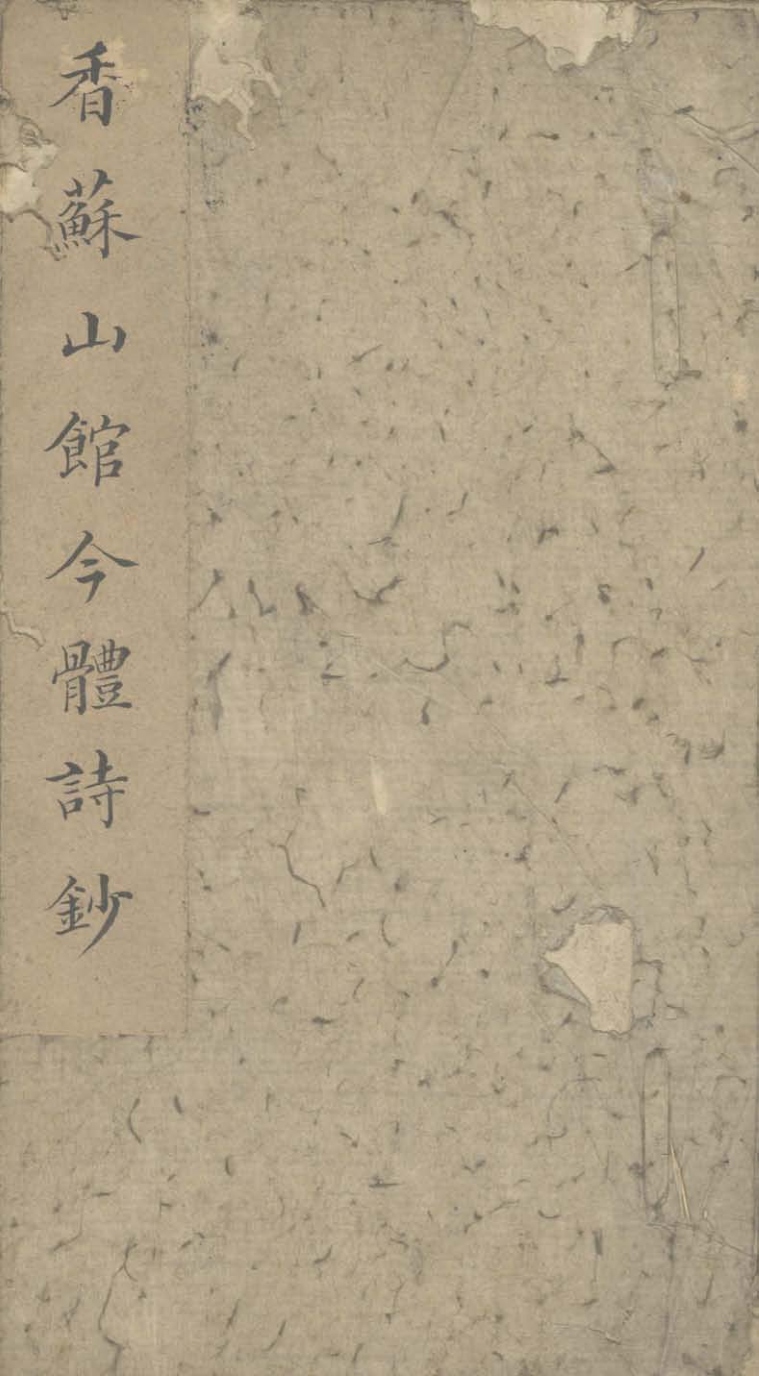 香蘇山館今體詩鈔